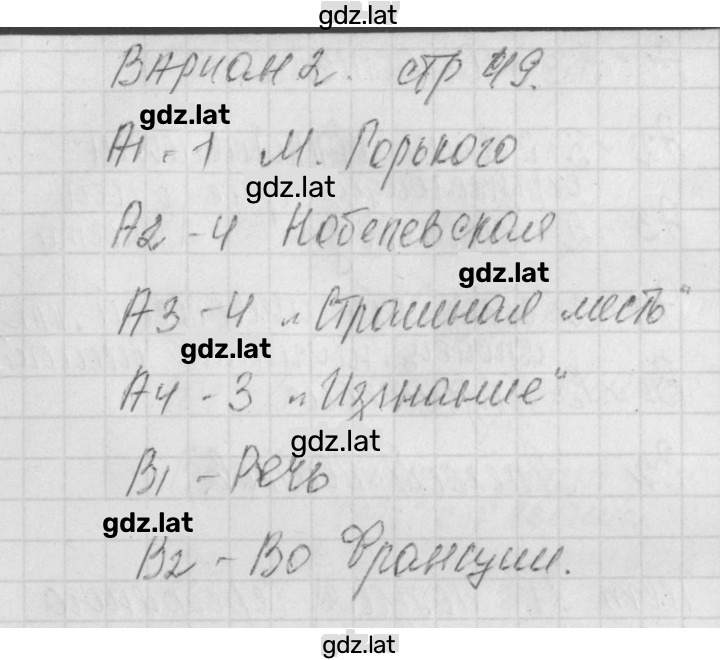 gdz.lat
Вариан 2. стр 49.
gdz.lat
А1 - 1 М. Горького
gdz.lat
А2 - 4 Нобелевская
gdz.lat
А3 - 4 „Страшная месть“
gdz.lat
А4 - 3 „Изгнание“
gdz.lat
В1 - Речь
gdz.lat
В2 - Во Франции.
gdz.lat